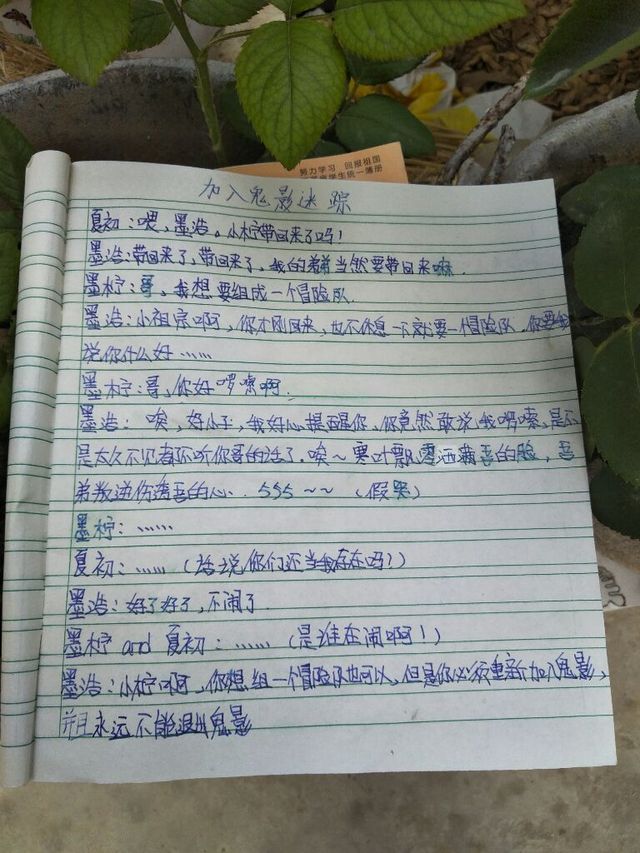 努力学习 回报祖国
学生统一簿册
加入鬼影迷踪
夏初：喂，墨浩。小柠带回来了吗！
墨浩：带回来了，带回来了，我的弟弟当然要带回来嘛.
墨柠：哥，我想要组成一个冒险队.
墨浩：小祖宗啊，你才刚回来，也不休息一下就要一个冒险队，你要我
说你什么好……
墨柠：哥，你好啰嗦啊.
墨浩：唉，好小子，我好心提醒你，你竟然敢说我啰嗦，是不
是太久不见都不听你哥的话了。唉～寒叶飘零洒满吾的脸，吾
弟叛逆伤透吾的心. 555～～（假哭）
墨柠：……
夏初：……（话说你们还当我存在吗？）
墨浩：好了好了，不闹了.
墨柠 and 夏初：……（是谁在闹啊！）
墨浩：小柠啊，你想组一个冒险队也可以，但是你必须重新加入鬼影，
并且永远不能退出鬼影